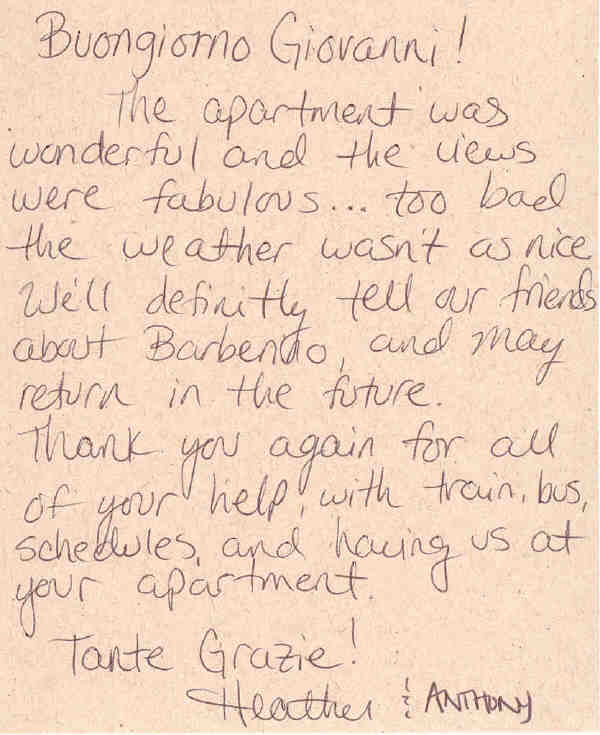 Buongiorno Giovanni!
The apartment was
wonderful and the views
were fabulous... too bad
the weather wasn't as nice
We'll definitly tell our friends
about Barbendo, and may
return in the future.
Thank you again for all
of your help, with train, bus,
schedules, and having us at
your apartment.
Tante Grazie!
Heather & ANTHONY